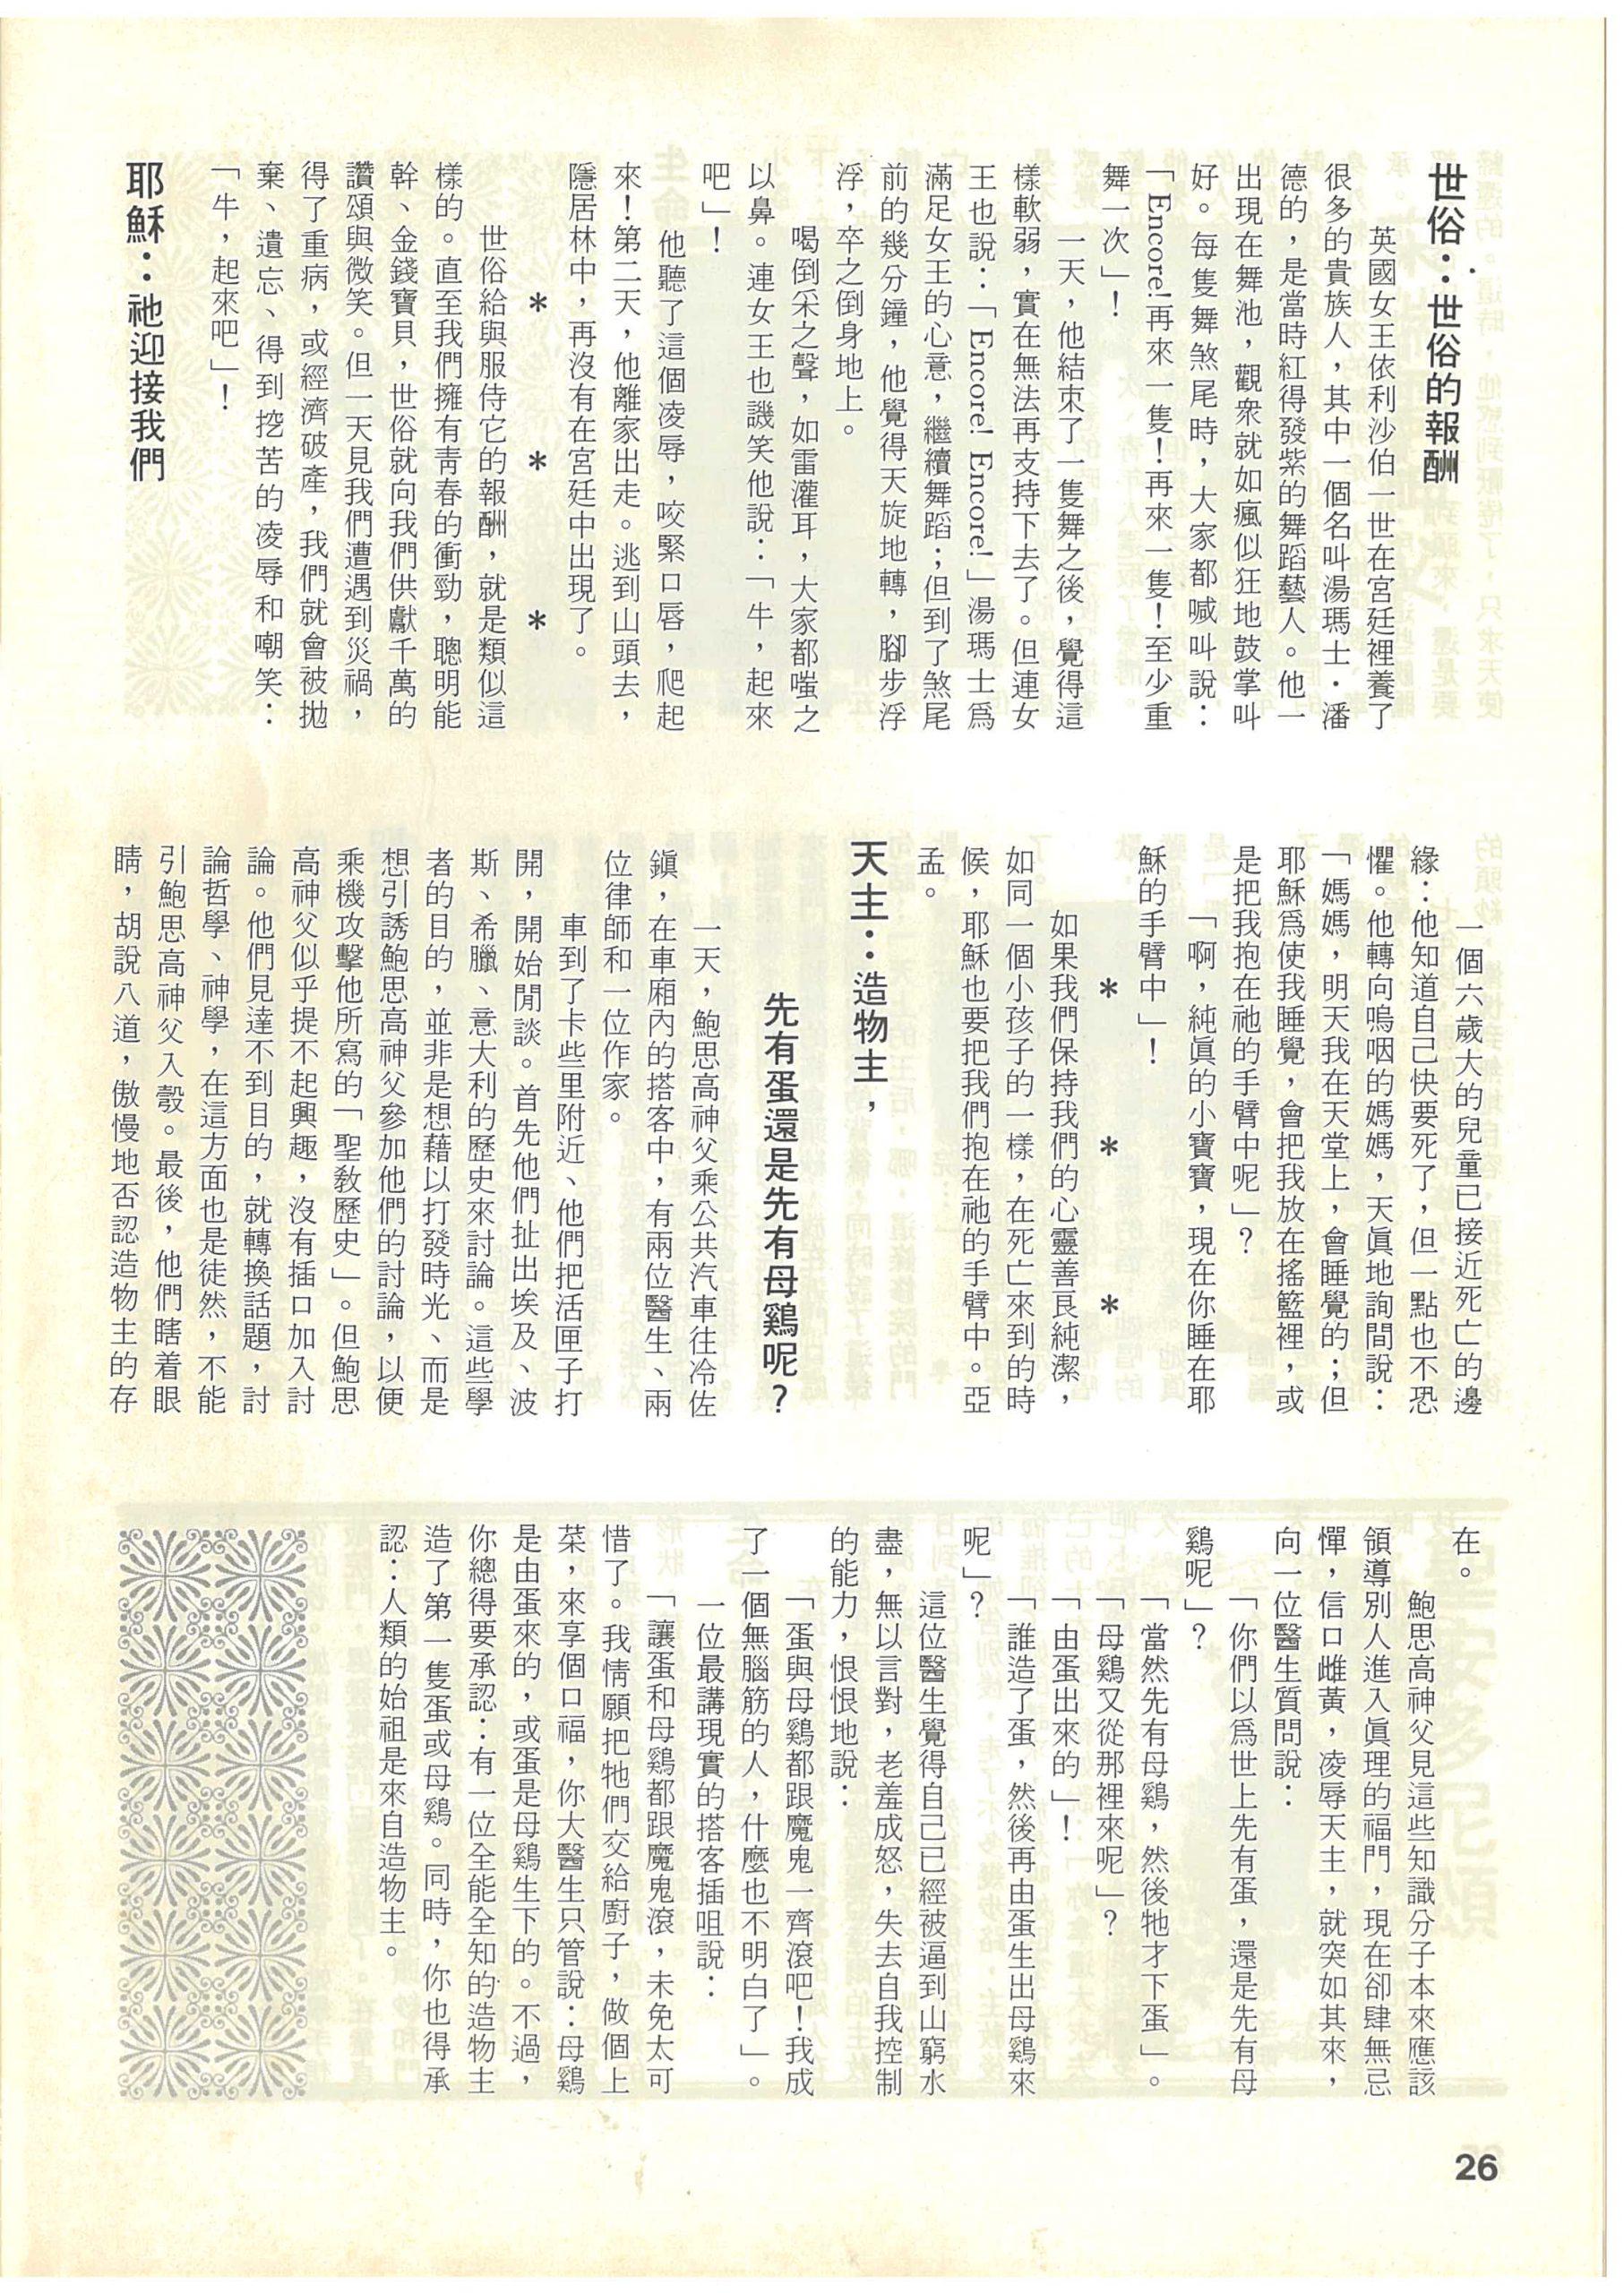 世俗：世俗的報酬
英國女王依利沙伯一世在宮廷裡養了
很多的貴族人，其中一個名叫湯瑪士．潘
德的，是當時紅得發紫的舞蹈藝人。他一
出現在舞池，觀衆就如瘋似狂地鼓掌叫
好。每隻舞煞尾時，大家都喊叫說：
「Encore!再來一隻!再來一隻!至少重
舞一次」!
一天，他結束了一隻舞之後，覺得這
樣軟弱，實在無法再支持下去了。但連女
王也說：「Encore! Encore!」湯瑪士爲
滿足女王的心意，繼續舞蹈；但到了煞尾
前的幾分鐘，他覺得天旋地轉，腳步浮
浮，卒之倒身地上。
喝倒采之聲，如雷灌耳，大家都嗤之
以鼻。連女王也譏笑他說：「牛，起來
吧」!
他聽了這個凌辱，咬緊口唇，爬起
來!第二天，他離家出走。逃到山頭去，
隱居林中，再沒有在宮廷中出現了。
* * *
世俗給與服侍它的報酬，就是類似這
樣的。直至我們擁有靑春的衝勁，聰明能
幹、金錢寶貝，世俗就向我們供獻千萬的
讚頌與微笑。但一天見我們遭遇到災禍，
得了重病，或經濟破產，我們就會被拋
棄、遺忘、得到挖苦的凌辱和嘲笑：
「牛，起來吧」!
耶穌：祂迎接我們
一個六歲大的兒童已接近死亡的邊
緣：他知道自己快要死了，但一點也不恐
懼。他轉向嗚咽的媽媽，天眞地詢間說：
「媽媽，明天我在天堂上，會睡覺的；但
耶穌爲使我睡覺，會把我放在搖籃裡，或
是把我抱在祂的手臂中呢」?
「啊，純眞的小寶寶，現在你睡在耶
穌的手臂中」!
* * *
如果我們保持我們的心靈善良純潔，
如同一個小孩子的一樣，在死亡來到的時
候，耶穌也要把我們抱在祂的手臂中。亞
孟。
天主：造物主，
先有蛋還是先有母鷄呢?
一天，鮑思高神父乘公共汽車往冷佐
鎭，在車廂內的搭客中，有兩位醫生、兩
位律師和一位作家。
車到了卡些里附近、他們把活匣子打
開，開始閒談。首先他們扯出埃及、波
斯、希臘、意大利的歷史來討論。這些學
者的目的，並非是想藉以打發時光、而是
想引誘鮑思高神父參加他們的討論，以便
乘機攻擊他所寫的「聖敎歷史」。但鮑思
高神父似乎提不起興趣，沒有插口加入討
論。他們見達不到目的，就轉換話題，討
論哲學、神學，在這方面也是徒然，不能
引鮑思高神父入彀。最後，他們瞎着眼
睛，胡說八道，傲慢地否認造物主的存
在。
鮑思高神父見這些知識分子本來應該
領導別人進入眞理的福門，現在卻肆無忌
憚，信口雌黃，凌辱天主，就突如其來，
向一位醫生質問說：
「你們以爲世上先有蛋，還是先有母
鷄呢」?
「當然先有母鷄，然後牠才下蛋」。
「母鷄又從那裡來呢」?
「由蛋出來的」!
「誰造了蛋，然後再由蛋生出母鷄來
呢」?
這位醫生覺得自己已經被逼到山窮水
盡，無以言對，老羞成怒，失去自我控制
的能力，恨恨地說：
「蛋與母鷄都跟魔鬼一齊滾吧!我成
了一個無腦筋的人，什麼也不明白了」。
一位最講現實的搭客插咀說：
「讓蛋和母鷄都跟魔鬼滾，未免太可
惜了。我情願把牠們交給廚子，做個上
菜，來享個口福，你大醫生只管說：母鷄
是由蛋來的，或蛋是母鷄生下的。不過，
你總得要承認：有一位全能全知的造物主
造了第一隻蛋或母鷄。同時，你也得承
認：人類的始祖是來自造物主。
26